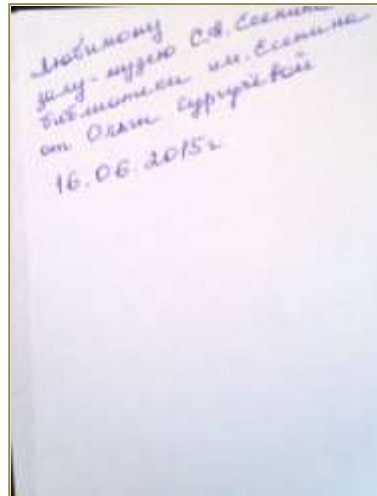 Любимому
залу-музею С.А. Есенина
библиотеки им. Есенина
от Ольги Сургучёвой
16.06.2015г.